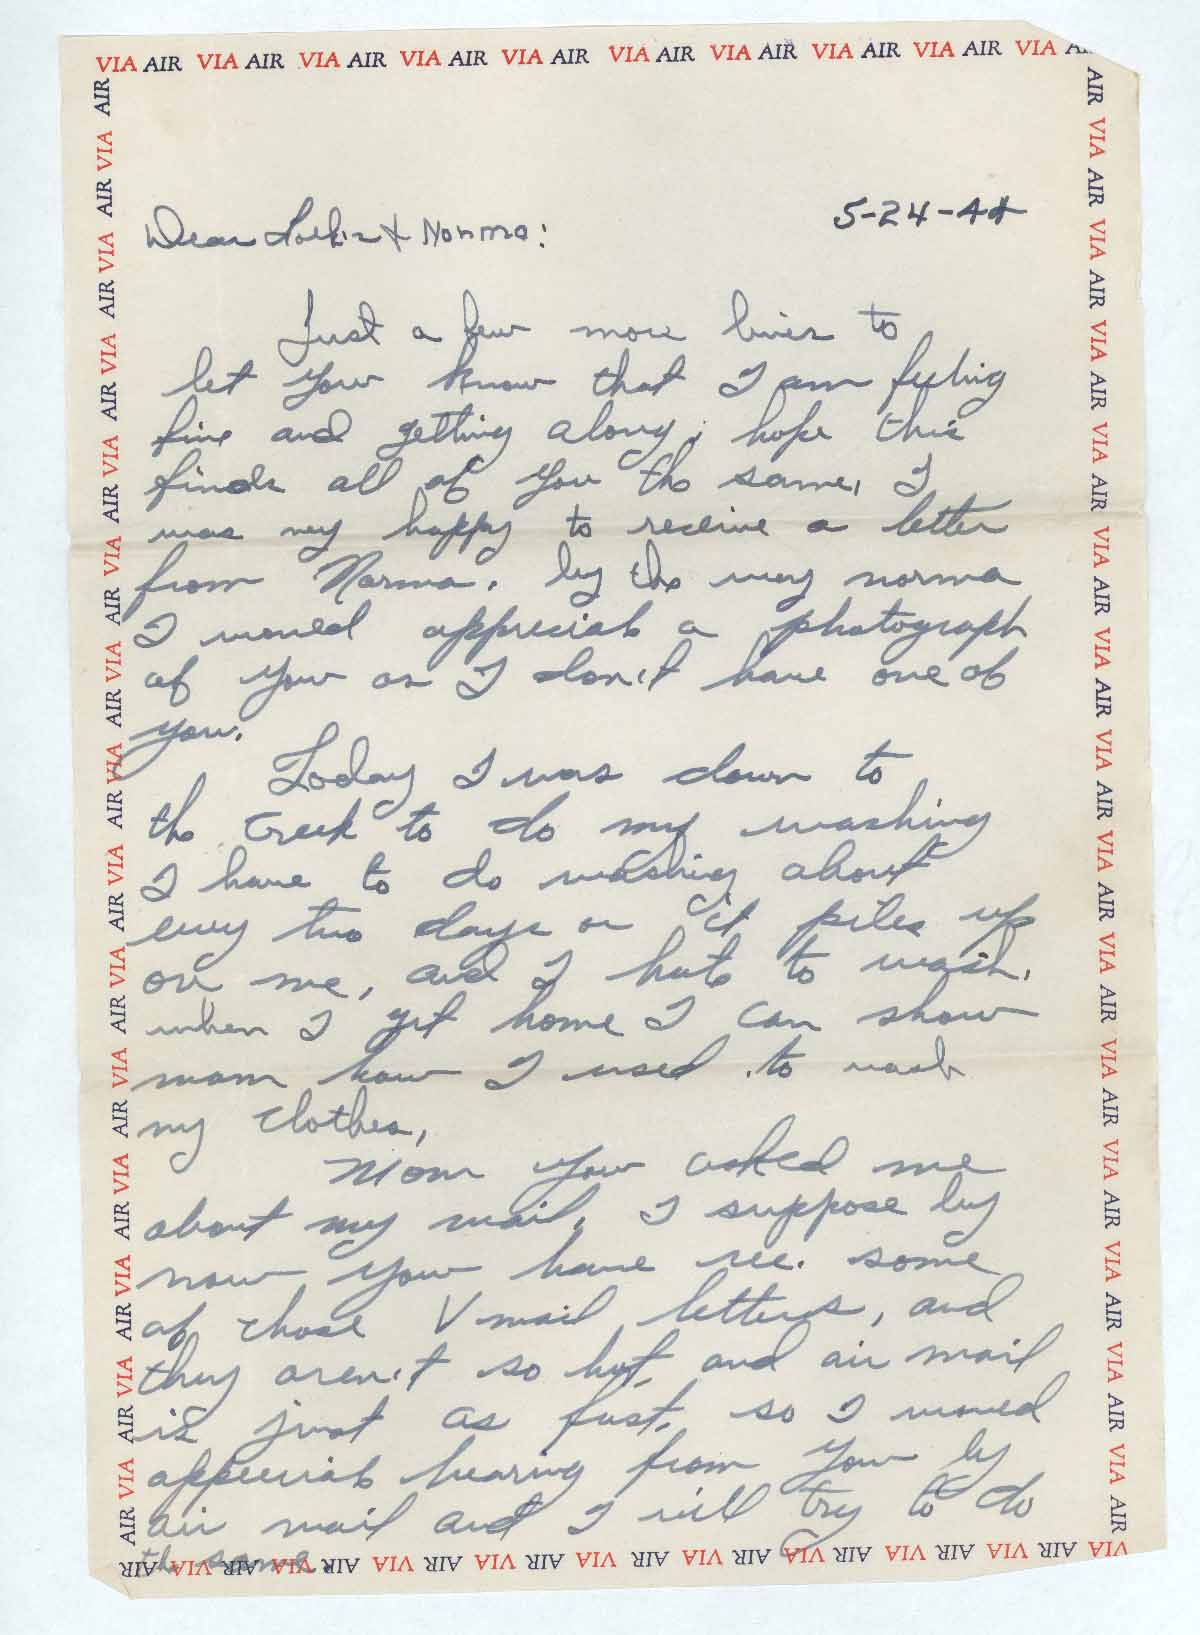 VIA AIR VIA AIR VIA AIR VIA AIR VIA AIR VIA AIR VIA AIR VIA AIR VIA AIR VIA
5-24-44
Dear & Norma:
Just a few more lines to
let you know that I am feeling
fine and getting along, hope this
finds all of you the same, I
was very happy to receive a letter
from Norma. by the way norma
I would appreciate a photograph
of you as I don't have one of
you.
Today I was down to
the creek to do my washing
I have to do washing about
every two days or it piles up
on me, and I hate to wash.
when I get home I can show
mom how I used to wash
my clothes,
Mom you asked me
about my mail, I suppose by
now you have rec. some
of those V mail letters, and
they aren't so hot, and air mail
is just as fast, so I would
appreciate hearing from you by
air mail and I will try to do
the same.
AIR VIA AIR VIA AIR VIA AIR VIA AIR VIA AIR VIA AIR VIA AIR VIA AIR VIA AIR VIA